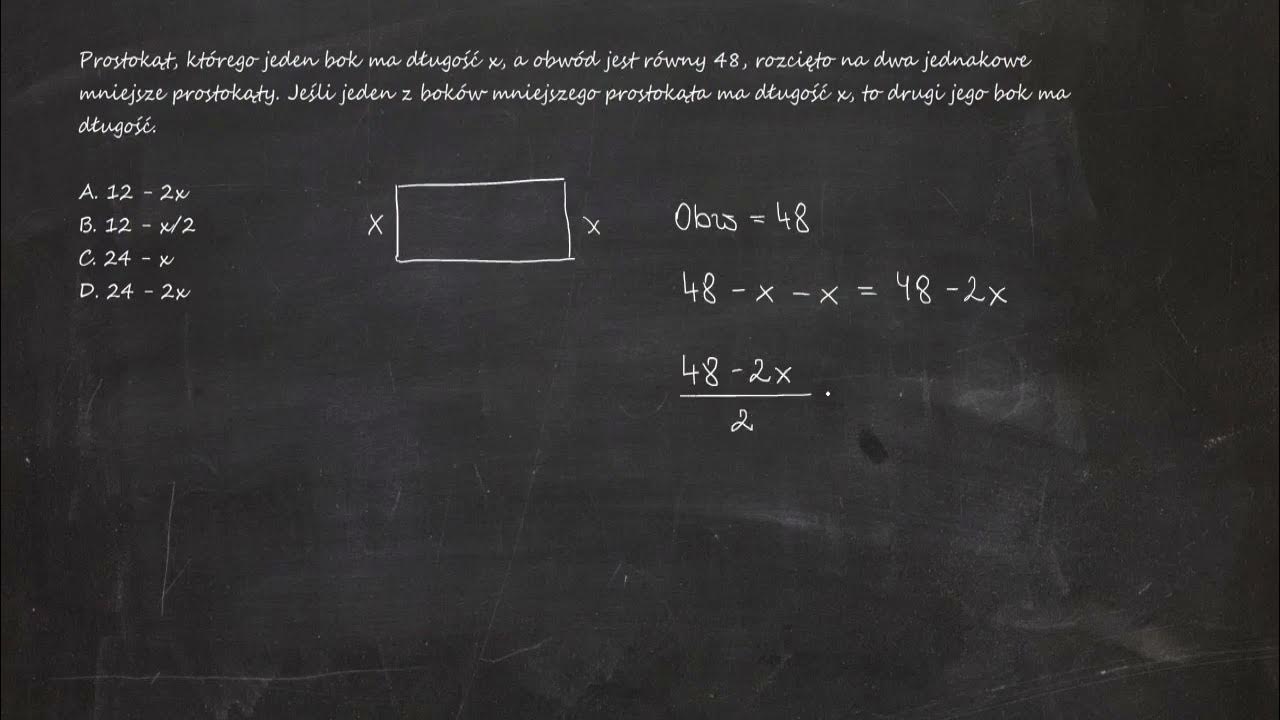 Prostokąt, którego jeden bok ma długość x, a obwód jest równy 48, rozcięto na dwa jednakowe
mniejsze prostokąty. Jeśli jeden z boków mniejszego prostokąta ma długość x, to drugi jego bok ma
długość.
A. 12 - 2x
B. 12 - x/2
C. 24 - x
D. 24 - 2x
x x
Obw = 48
48 - x - x = 48 - 2x
48 - 2x
2